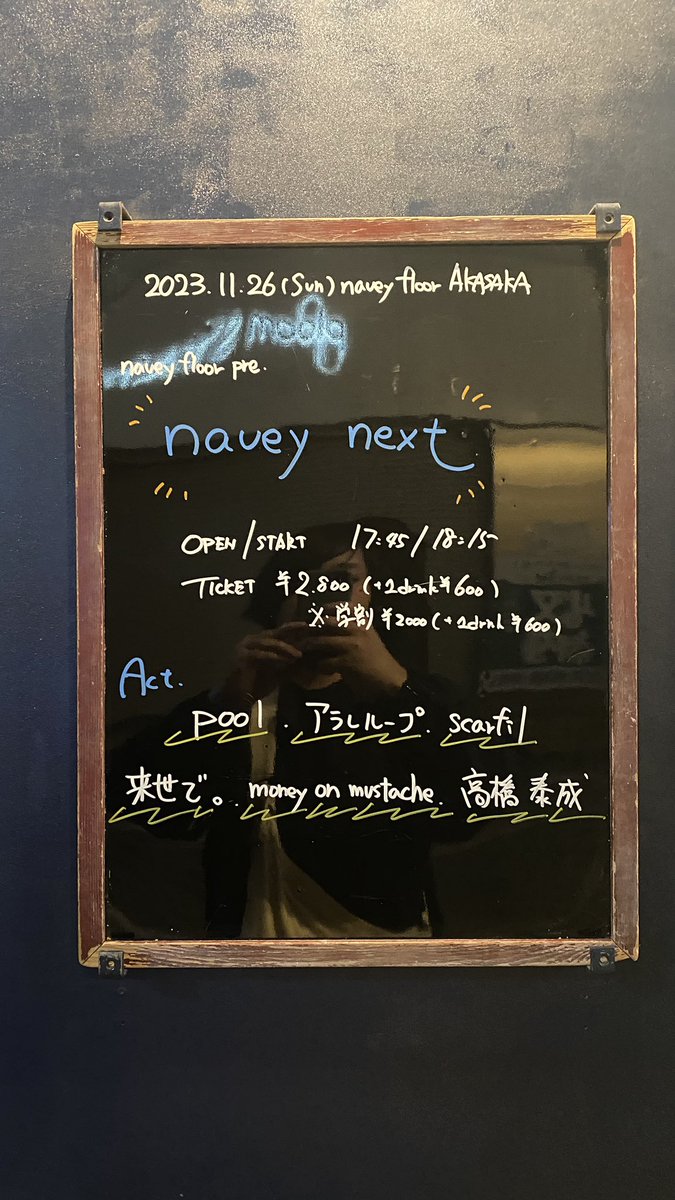 2023.11.26(Sun) navey floor AKASAKA
navey floor pre.
navey next
OPEN/START 17:45/18:15
TICKET ¥2.800 (+1drink¥600)
※学割 ¥2000(+1drink¥600)
Act.
pool . アラレループ. scarfil
来世で。. money on mustache. 高橋 泰成